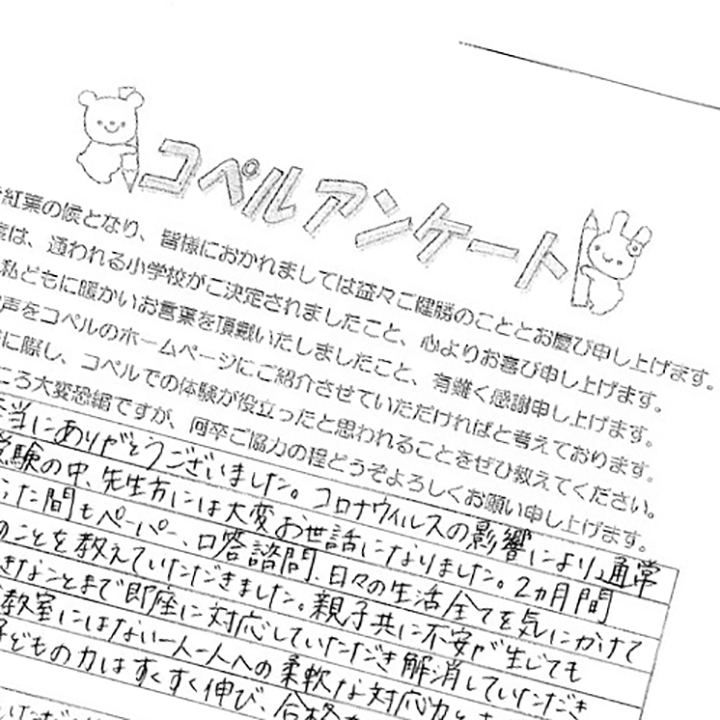 コペルアンケート
紅葉の候となり、皆様におかれましては益々ご健勝のこととお慶び申し上げます。
は、通われる小学校がご決定されましたこと、心よりお喜び申し上げます。
私どもに暖かいお言葉を頂戴いたしましたこと、有難く感謝申し上げます。
声をコペルのホームページにご紹介させていただければと考えております。
に際し、コペルでの体験が役立ったと思われることをぜひ教えてください。
ころ大変恐縮ですが、何卒ご協力の程どうぞよろしくお願い申し上げます。
当にありがとうございました。コロナウィルスの影響により、通常
験の中、先生方には大変お世話になりました。2ヵ月間
った間もペーパー、口答諮問、日々の生活全てを気にかけて
のことを教えていただきました。親子共に不安が生じても
きなことまで即座に対応していただき解消していただき
教室にはない一人一人への柔軟な対応力と
子どもの力はすくすく伸び、合格